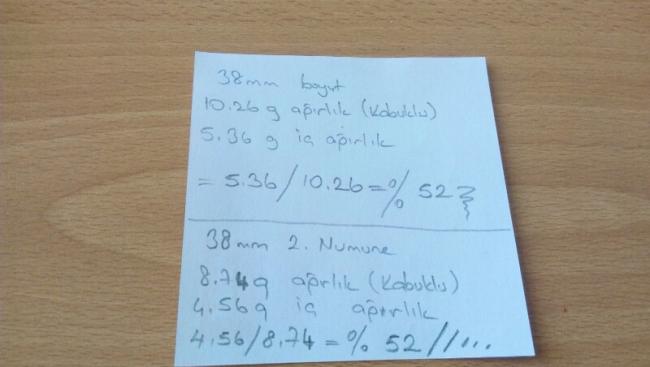 38mm boyut
10.26 g ağırlık (Kabuklu)
5.36 g iç ağırlık
= 5.36/10.26 = % 52
38mm 2. Numune
8.74g ağırlık (Kabuklu)
4.56g iç ağırlık
4.56/8.74 = % 52 //...